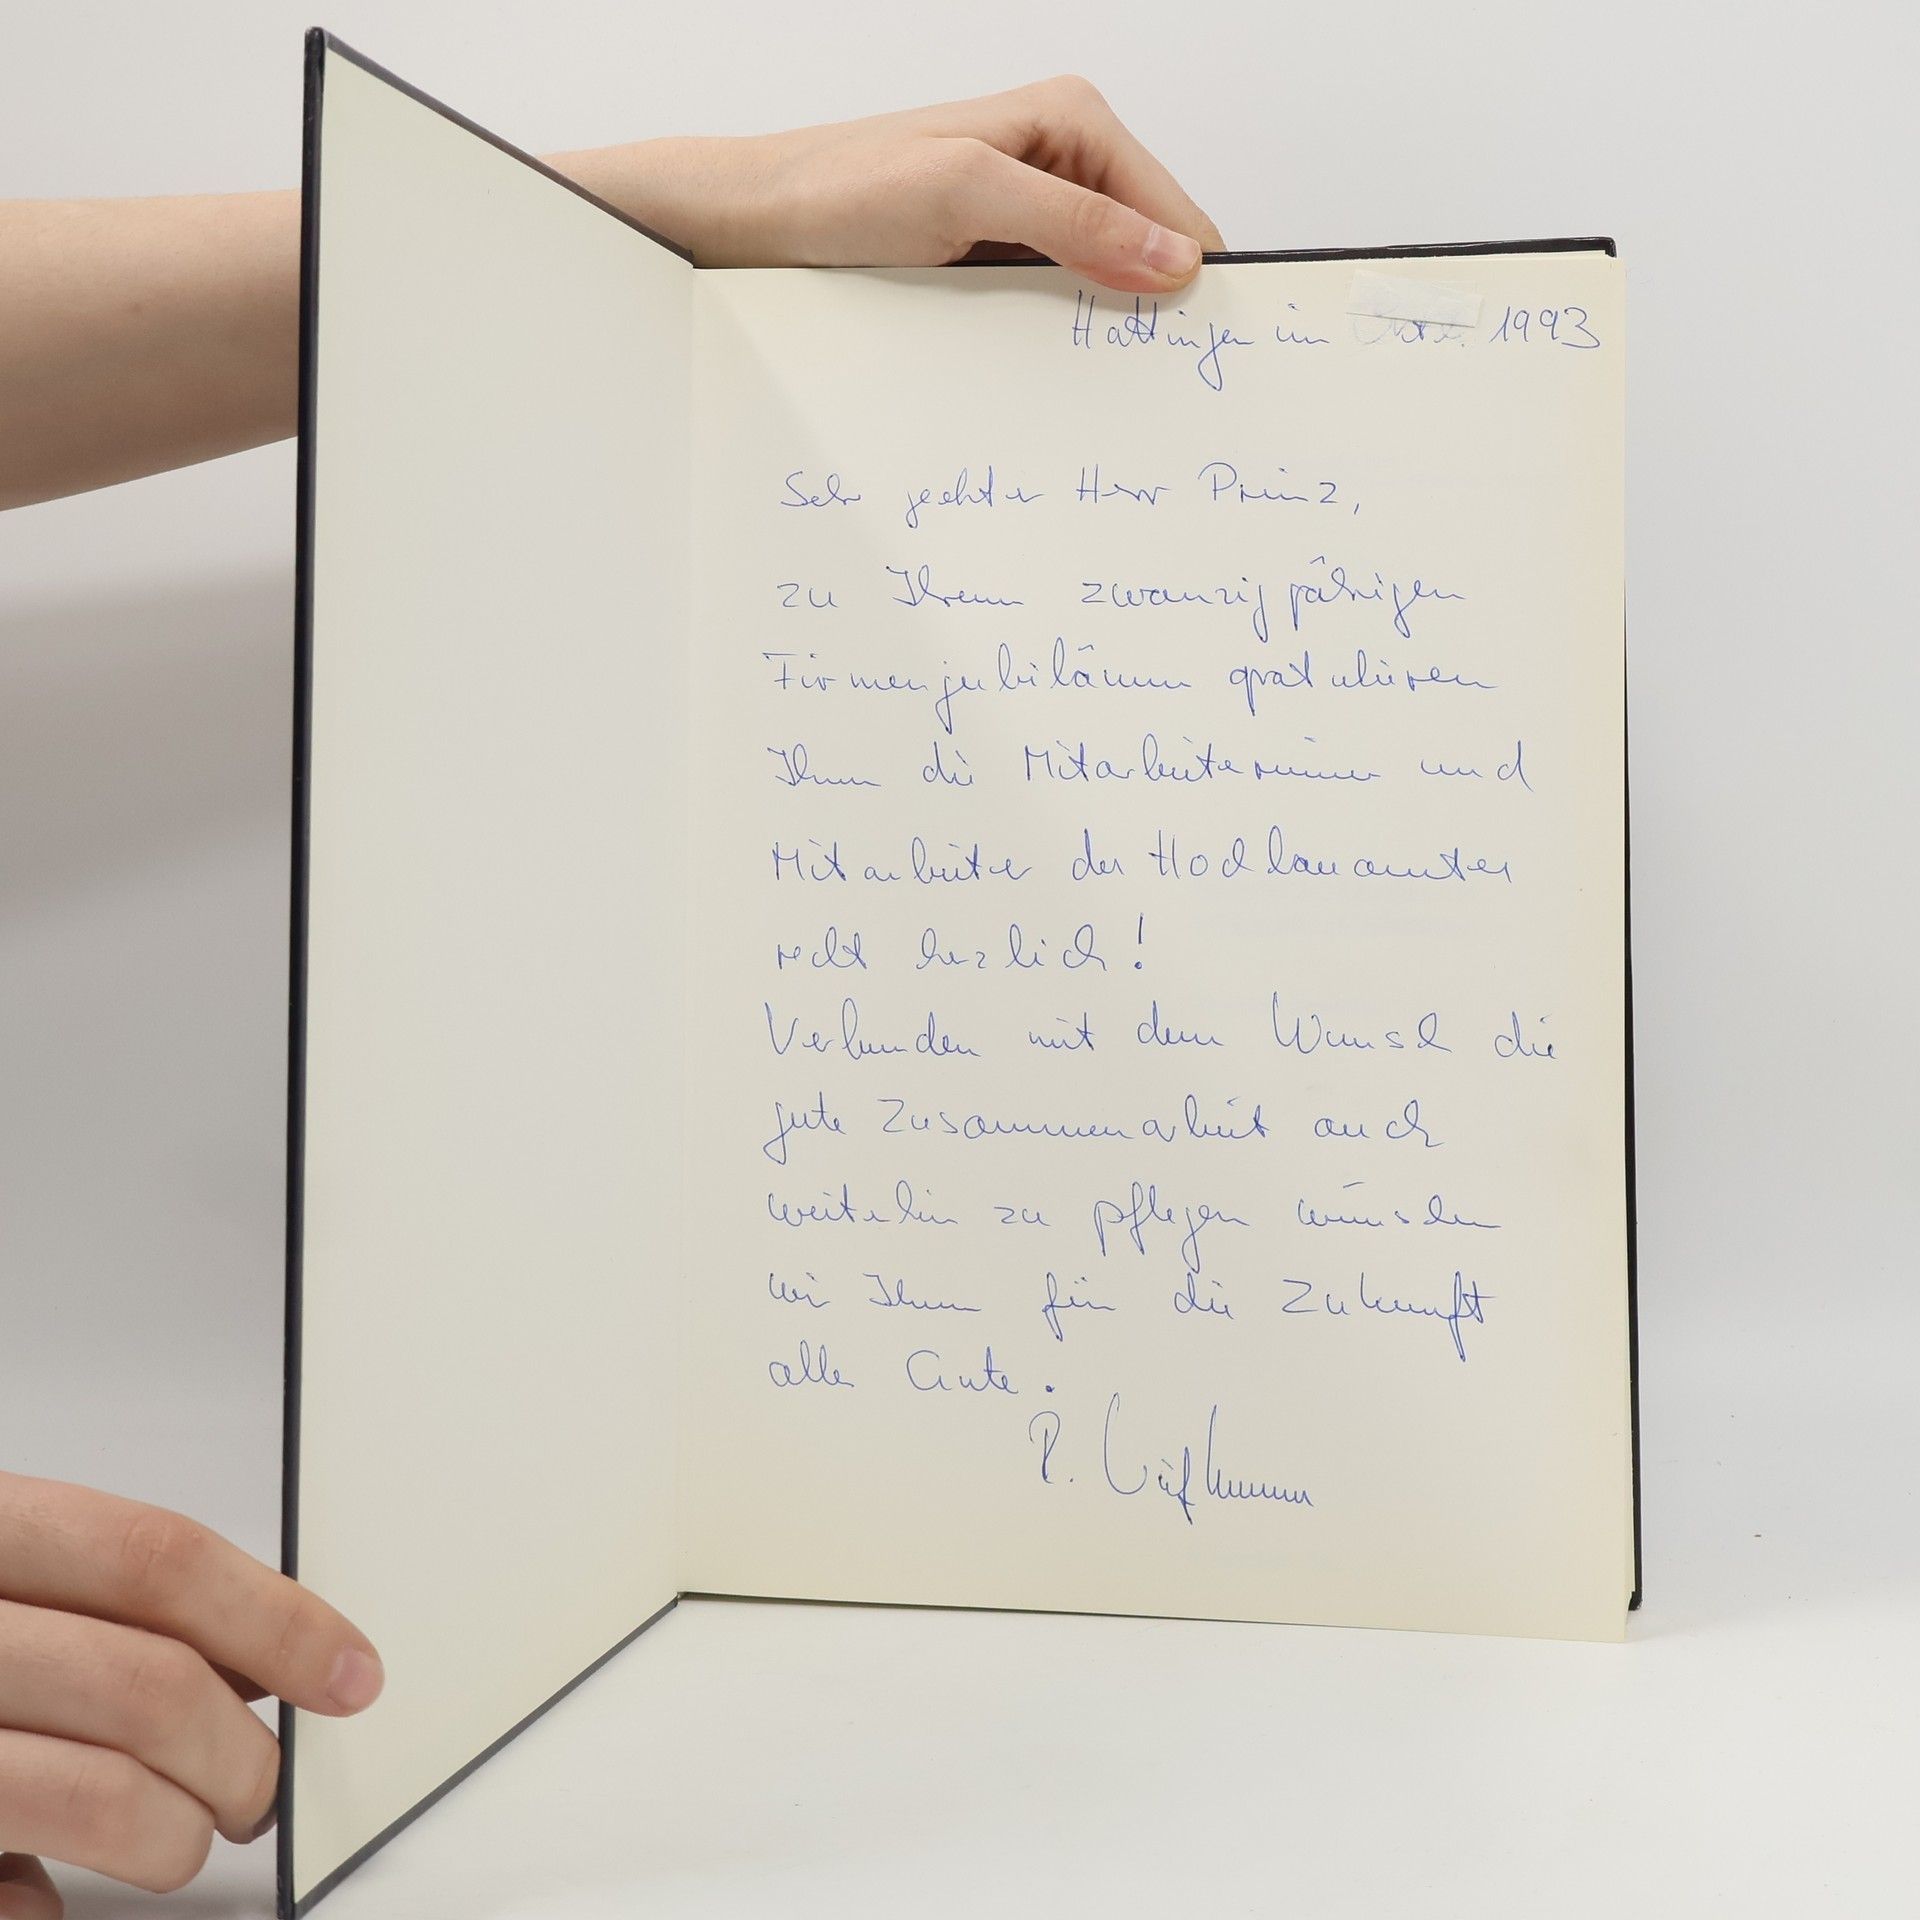 Hattingen im 1993
Sehr geehrter Herr Prinz,
zu Ihrem zwanzigjährigen
Firmenjubiläum gratulieren
Ihnen die Mitarbeiterinnen und
Mitarbeiter des Hochbauamtes
recht herzlich!
Verbunden mit dem Wunsch die
gute Zusammenarbeit auch
weiterhin zu pflegen wünschen
wir Ihnen für die Zukunft
alles Gute.
P.